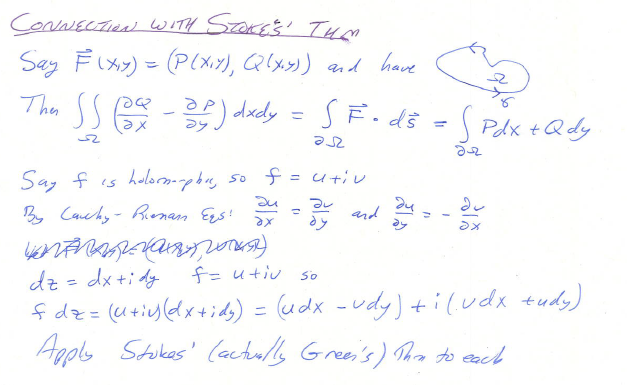 CONNECTION WITH STOKES' THM
Say F⃗(x,y) = (P(x,y), Q(x,y)) and have
Ω
γ
Then ∬_Ω (∂Q/∂x − ∂P/∂y) dxdy = ∫_∂Ω F⃗ · ds⃗ = ∫_∂Ω Pdx + Qdy
Say f is holomorphic, so f = u+iv
By Cauchy-Riemann Eqs: ∂u/∂x = ∂v/∂y and ∂u/∂y = − ∂v/∂x
dz = dx+idy f = u+iv so
f dz = (u+iv)(dx+idy) = (udx − vdy) + i(vdx + udy)
Apply Stokes' (actually Green's) Thm to each